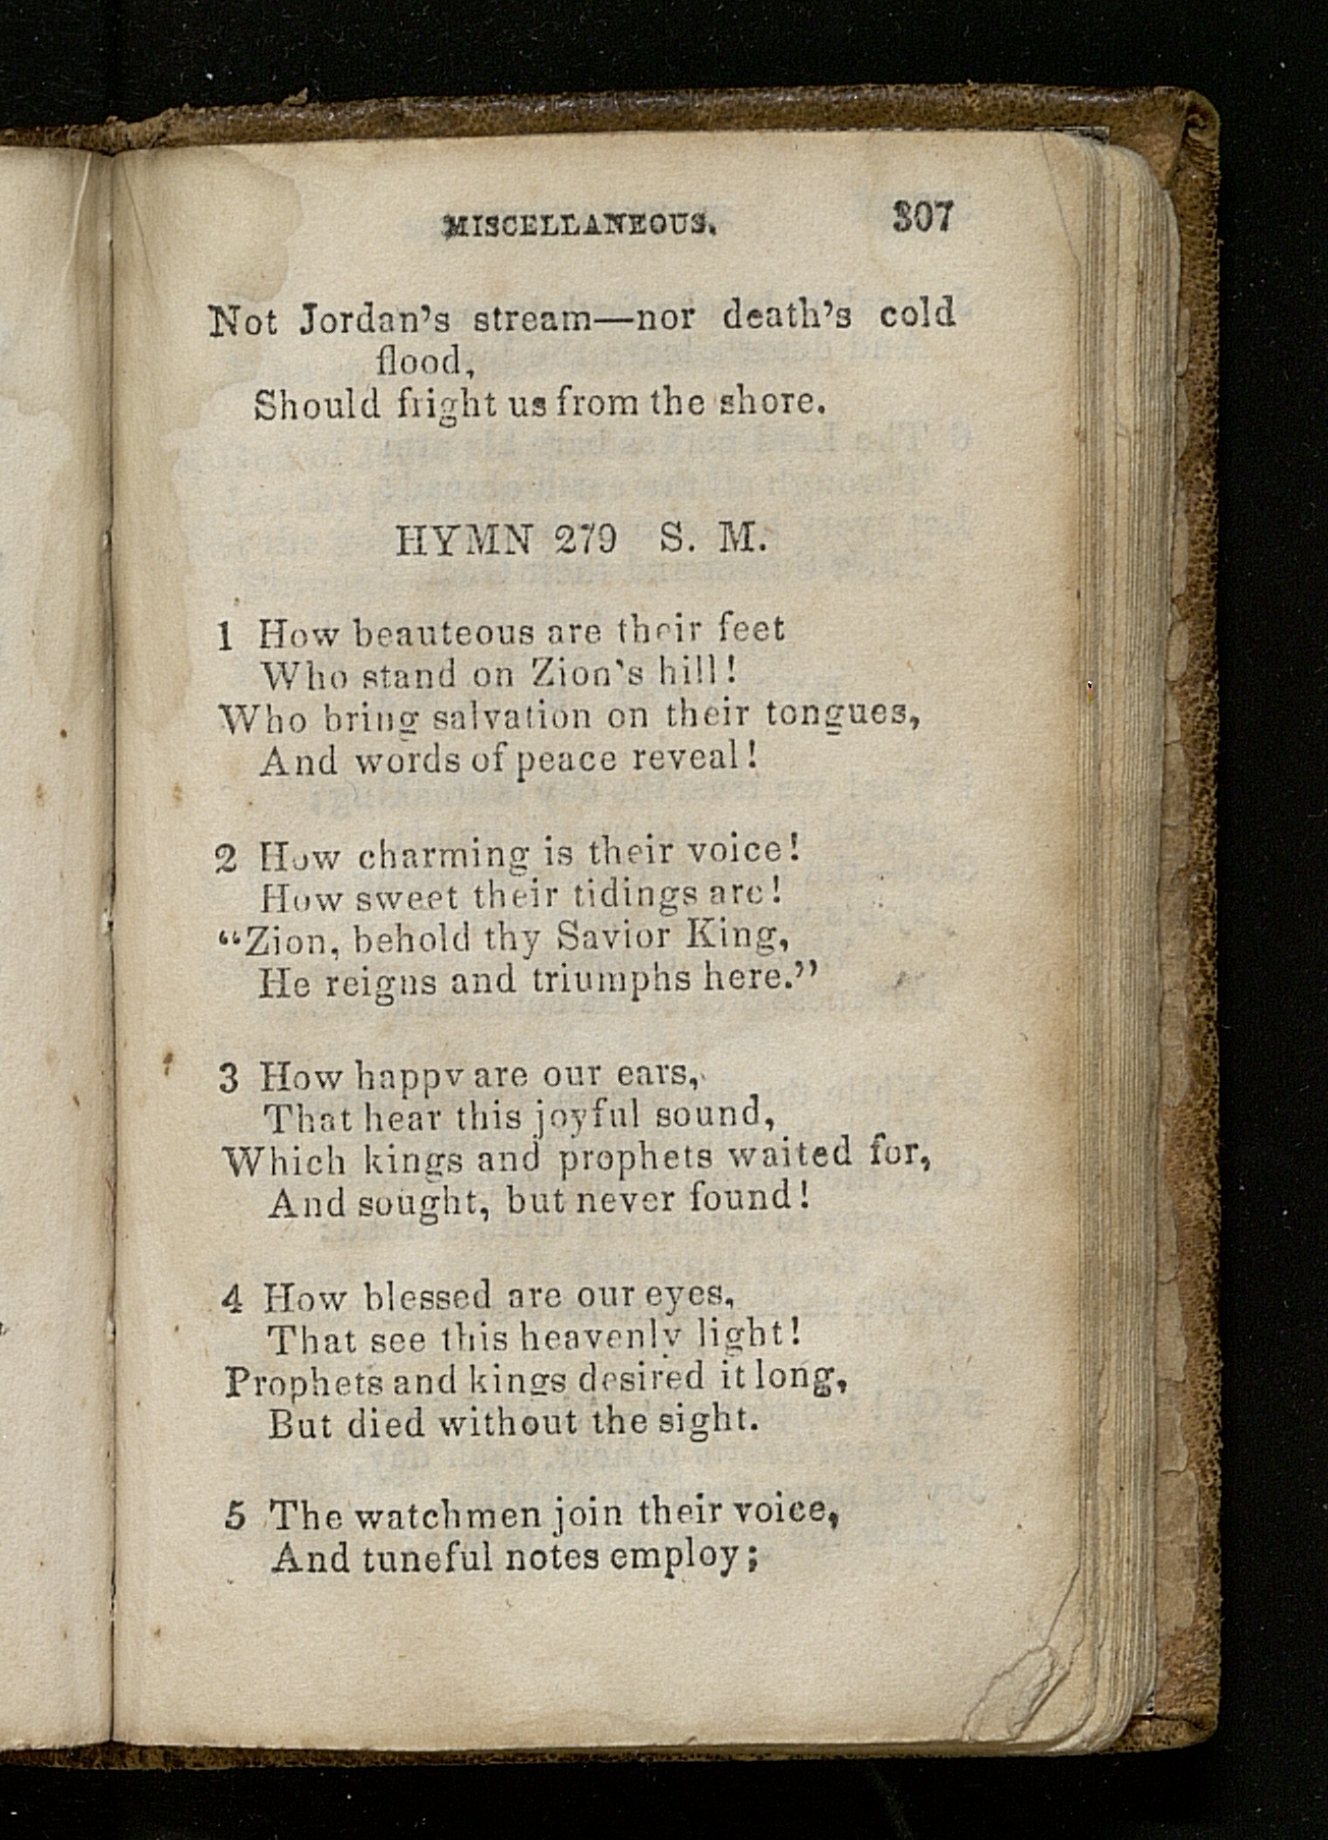 MISCELLANEOUS. 307
Not Jordan's stream—nor death's cold
flood,
Should fright us from the shore.
HYMN 279 S. M.
1 How beauteous are their feet
Who stand on Zion's hill!
Who bring salvation on their tongues,
And words of peace reveal!
2 How charming is their voice!
How sweet their tidings are!
"Zion, behold thy Savior King,
He reigns and triumphs here."
3 How happy are our ears,
That hear this joyful sound,
Which kings and prophets waited for,
And sought, but never found!
4 How blessed are our eyes,
That see this heavenly light!
Prophets and kings desired it long,
But died without the sight.
5 The watchmen join their voice,
And tuneful notes employ;